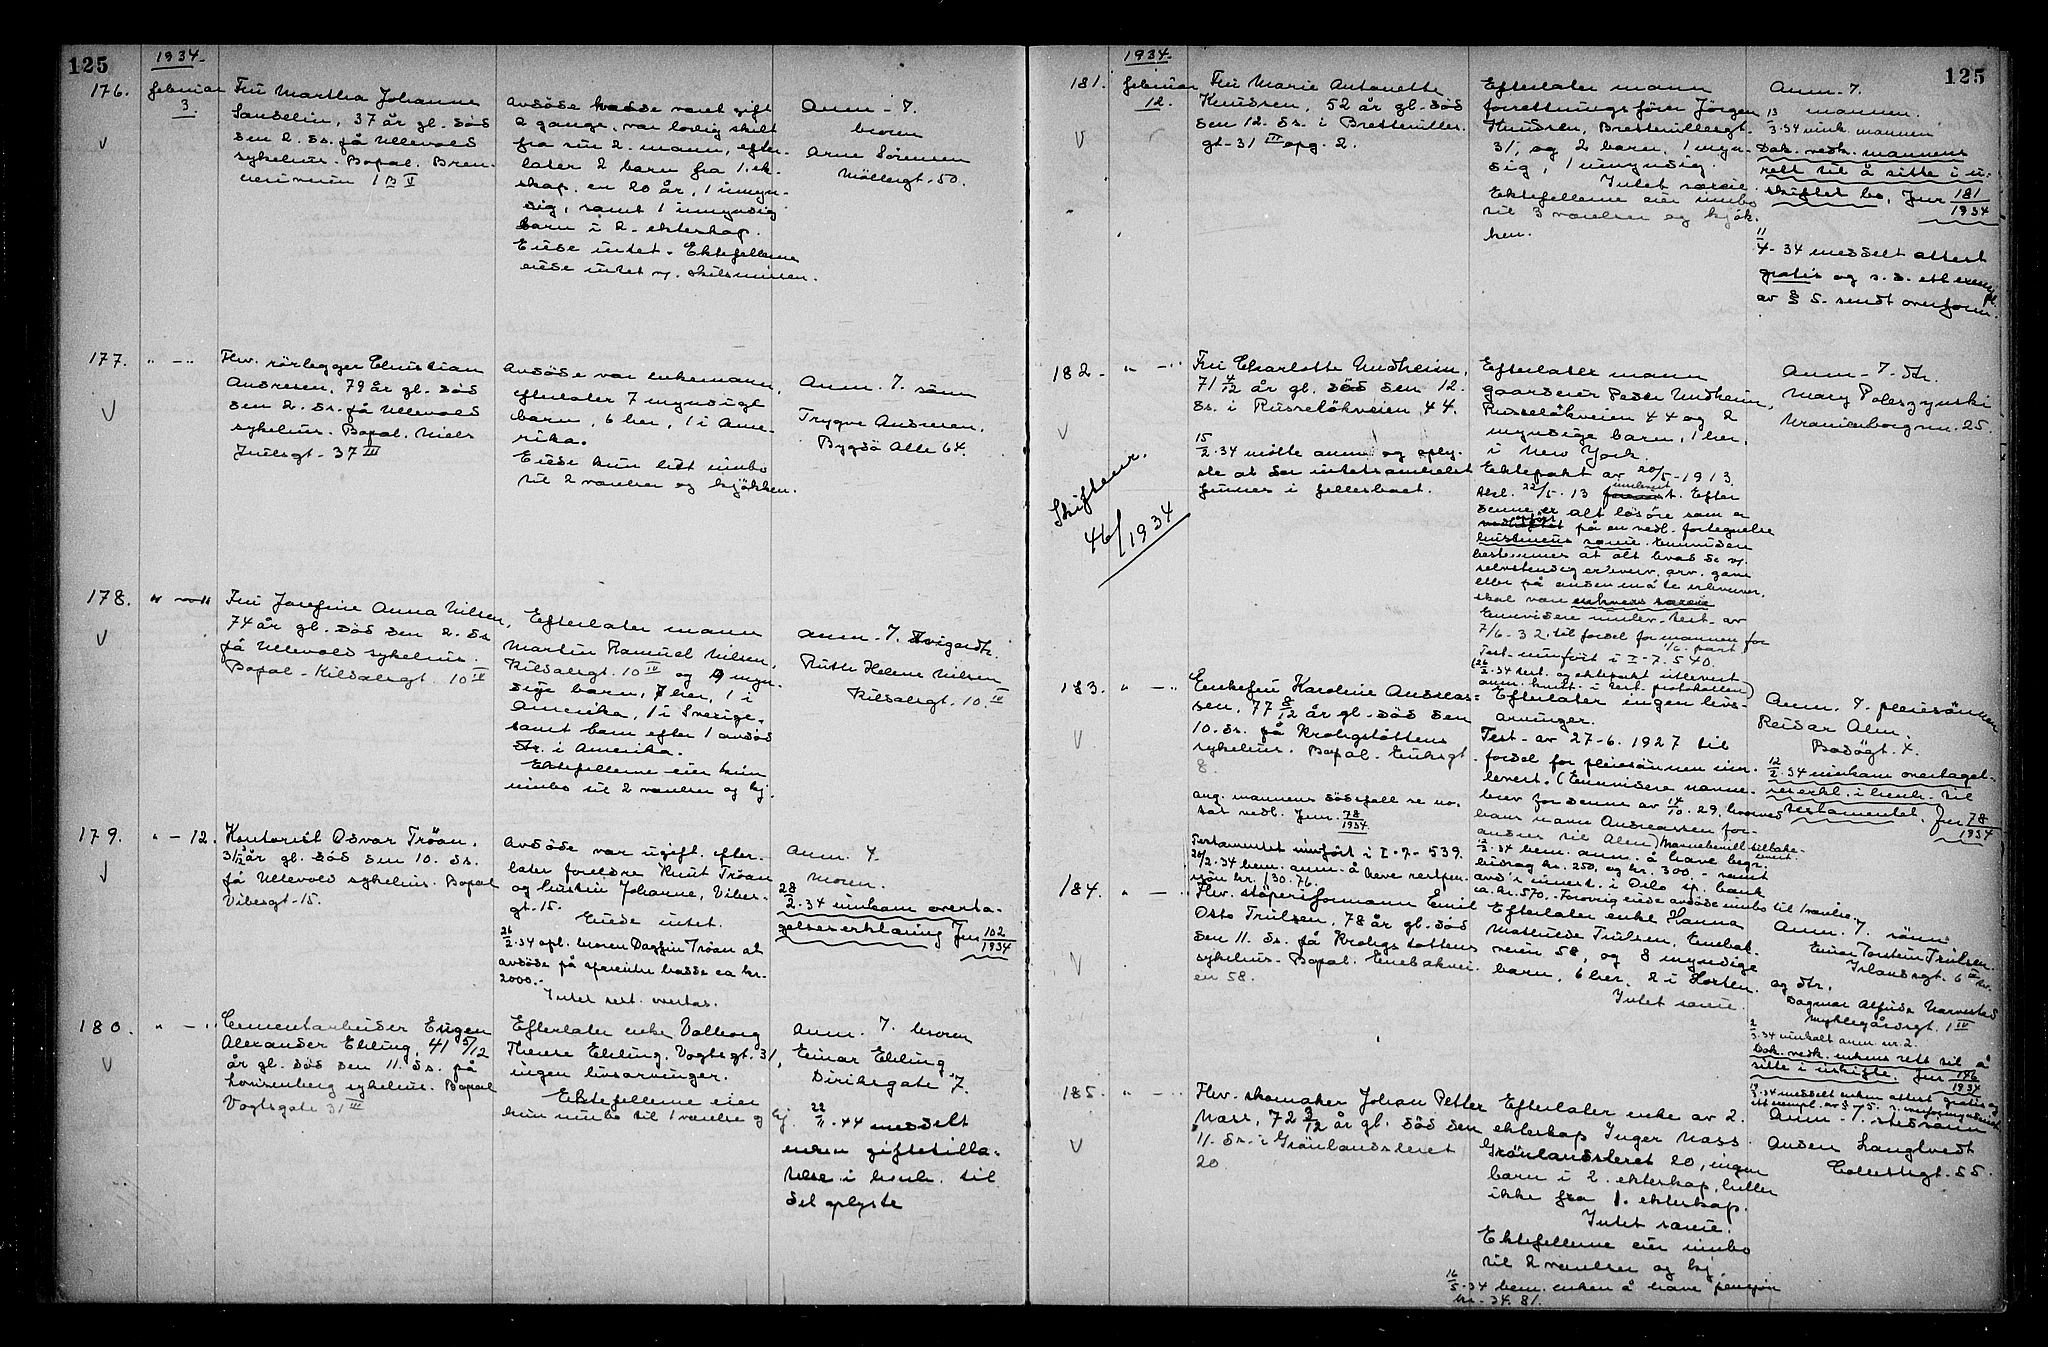 125
1934.
176.
februar
3.
Fru Martha Johanne
Sandelin, 37 år gl. død
den 2. ds. på Ullevold
sykehus. Bopal. Bren-
neriveien 1 B V
Avdøde hadde vært gift
2 gange, var lovlig skilt
fra sin 2. mann, efter-
later 2 barn fra 1. ek-
skap. en 20 år, 1 umyn-
dig, samt 1 umyndig
barn i 2. ekteskap.
Eiede intet. Ektefellerne
eiede intet v. skilsmissen.
Anm. 7.
broren
Arne Sørensen
Møllergt. 50.
177.
" - "
Fhv. rørlegger Christian
Andresen, 79 år gl. død
den 2. ds. på Ullevold
sykehus. Bopal. Niels
Juulsgt. 37 III
Avdøde var enkemann,
efterlater 7 myndige
barn, 6 her, 1 i Ame-
rika.
Eiede kun litt innbo
til 2 værelser og kjøkken.
Anm. 7. sønn
Trygve Andresen,
Bygdø Alle 64.
178.
" - "
Fru Josefine Anna Nilsen,
74 år gl. død den 2. ds.
på Ullevold sykehus.
Bopal. Kildalsgt. 10 IV
Efterlater mann
Martin Samuel Nilsen,
Kildalsgt. 10 IV og 9 myn-
dige barn, 7 her, 1 i
Amerika, 1 i Sverige,
samt barn efter 1 avdød
dtr. i Amerika.
Ektefellerne eier kun
innbo til 2 værelser og kj.
Anm. 7. svigerdtr.
Ruth Helene Nilsen
Kildalsgt. 10. IV
179.
" - 12.
Kontorist Odvar Trøan,
år gl. død den 10. ds.
på Ullevold sykehus. Bopal
Vibesgt. 15.
Avdøde var ugift. efter-
later foreldre Knut Trøan
og hustru Johanne, Vibes-
gt. 15.
Eiede intet.
26/2.34 opl. broren Dagfin Trøan at
avdøde på sparebk. hadde ca kr.
2000.-
Intet test. overtas.
Anm. 7.
broren.
28/2.34 innkom overta-
gelseserklæring Jnr 102/1934
180.
" - "
Cementarbeider Eugen
Alexander Ekling, 41 5/12
år gl. død den 11. ds. på
Lovisenberg sykehus. Bopal
Vogtsgate 31 III
Efterlater enke Valborg
Therese Ekling, Vogtsgt. 31,
ingen livsarvinger.
Ektefellerne eier
kun innbo til 1 værelse og kj.
Anm. 7. broren
Einar Ekling
Diriksgate 7.
22/11.44 meddelt
enken giftetilla-
telse i henh. til
det oplyste
125
1934.
181.
februar
12.
Fru Marie Antonette
Knudsen, 52 år gl. død
den 12. ds. i Bretteville-
gt. 31 III opg. 2.
Efterlater mann
forretningsfører Jørgen
Knudsen, Brettevillesgt.
31, og 2 barn, 1 myn-
dig, 1 umyndig.
Intet særeie.
Ektefellerne eier innbo
til 3 værelser og kjøk-
ken.
Anm. 7.
mannen.
13/3.34 innk. mannen
Dok. vedk. mannens
rett til å sitte i u-
skiftet bo, Jnr 181/1934
11/4. 34 meddelt attest
gratis og s. d. ett exempl.
av § 5. sendt overform.
182.
" - "
Fru Charlotte Undheim,
71 4/12 år gl. død den 12.
ds. i Russeløkveien 44.
15/2.34 møtte anm. og oply-
ste at der intetsomhelst
finnes i fellesboet.
Skiftenr.
46/1934
Efterlater mann
gaardeier Peder Undheim,
Russeløkveien 44 og 2
myndige barn, 1 her,
i New York.
Ektepakt av 20/5-1913.
tgl. 22/5. 13 innlevert. Efter
denne er alt løsøre som er
opført på en vedl. fortegnelse
hustruens særeie. Ennvidere
bestemmes at alt hvad de v.
selvstendig erhverv, arv, gave
eller på anden måte erhverver,
skal være enhvers særeie
Ennvidere innlev. test. av
7/6-32. til fordel for mannen for
Test. innført i I-7. 540.
26/2.34 test. og ektepakt utlevert
anm. kvitt. i test. protokollen)
Anm. 7. dtr.
Mary Poleszynski
Uranienborgvn. 25.
183.
" - "
Enkefru Karoline Andreas-
sen, 77 8/12 år gl. død den
10. ds. på Krohgstøttens
sykehus. Bopal. Eriksgt.
8.
ang. mannens dødsfall se no-
tat vedl. Jnr. 78/1934
Testamentet innført i I-7- 539.
26/2.34 bem. anm. å heve restpen-
sjon kr. 130.76.
Efterlater ingen livs-
arvinger.
Test. av 27-6. 1927 til
fordel for pleiesønnen inn-
levert. (Ennvidere navne-
brev for denne av 14/10. 29, hvorved
hans navn Andreassen for-
andres til Alm) Navnebevill. tilbake-
levert.
12/2.34 bem. anm. å heve begr.
bidrag kr. 250, og kr. 300. - samt
avd's innest. i Oslo sp. bank
ca. kr. 570. Forøvrig eiede avdøde innbo til 1 værelse.
Anm. 7. pleiesønnen
Reidar Alm.
Bodøgt. 4.
12/2.34 innkom overtagel-
seserkl. i henh. til
testamentet. Jnr 78/1934
184.
" - "
Fhv. støperiformann Emil
Otto Trulsen, 78 år gl. død
den 11. ds. på Krohgstøttens
sykehus. Bopal. Enebakvei-
en 58.
Efterlater enke Hanna
Mathilde Trulsen, Enebak-
veien 58, og 8 myndige
barn, 6 her, 2 i Horten.
Intet særeie.
Anm. 7. sønn
Einar Torstein Trulsen.
Islandsgt. 6
og dtr.
Dagmar Alfilde Narvestad
Myklegårdsgt. 1 IV
2/3.34 innkalt anm. nr. 2.
Dok. vedk. enkens rett til å
sitte i uskifte. Jnr 146/1934
19/3.34 meddelt enken attest gratis og
185.
" - "
Fhv. skomaker Johan Petter
Næss, 72 9/12 år gl. død den
11. ds. i Grønlandsleret
20.
Efterlater enke av 2.
ekteskap Inger Næss.
Grønlandsleret 20, ingen
barn i 2. ekteskap, heller
ikke fra 1. ekteskap.
Intet særeie.
Ektefellerne eier innbo
til 2 værelser og kj.
16/5.34 bem. enken å heve pensjon
kr. 34.81.
Anm. 7. stedsønn
Anden Langtvedt
55.